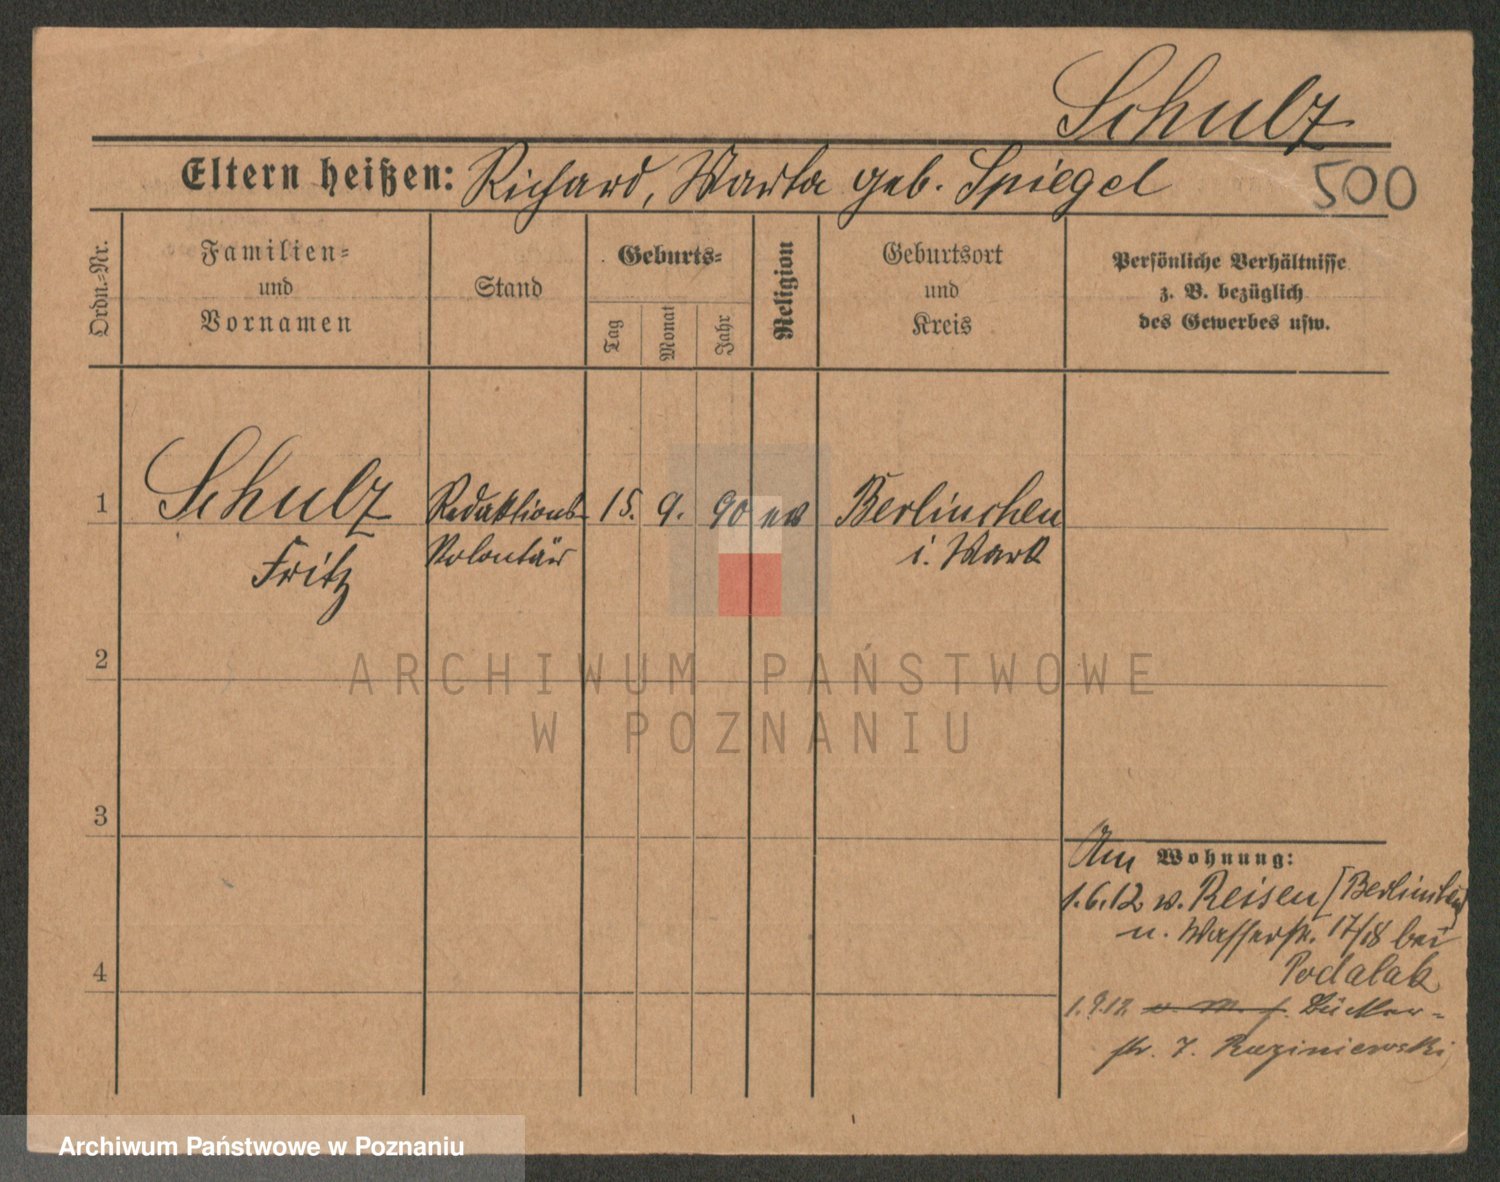 Schulz
Eltern heißen: Richard, Marta geb. Spiegel
500
Ordn.-Nr.
Familien-
und
Vornamen
Stand
Geburts-
Tag
Monat
Jahr
Religion
Geburtsort
und
Kreis
Persönliche Verhältnisse
z. B. bezüglich
des Gewerbes usw.
1 Schulz Redaktions- 15. 9. 90 ev Berlinchen
Fritz Volontär i. Mark
2
ARCHIWUM PAŃSTWOWE
W POZNANIU
3
4
Am Wohnung:
1.6.12 v. Reisen [Berlinchen]
n. Wasserstr. 17/18 bei
Podalak
1.9.12.
str. 7.
Archiwum Państwowe w Poznaniu